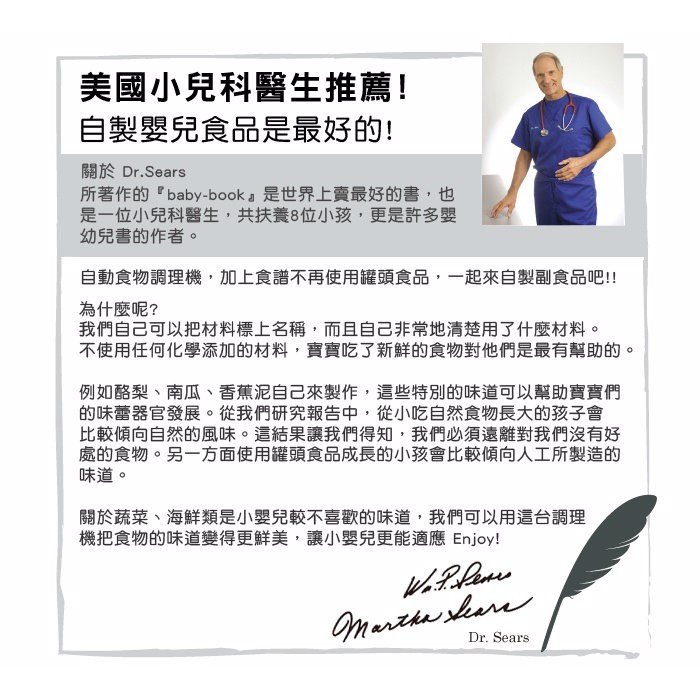 美國小兒科醫生推薦!
自製嬰兒食品是最好的!
關於 Dr.Sears
所著作的『baby-book』是世界上賣最好的書，也
是一位小兒科醫生，共扶養8位小孩，更是許多嬰
幼兒書的作者。
自動食物調理機，加上食譜不再使用罐頭食品，一起來自製副食品吧!!
為什麼呢?
我們自己可以把材料標上名稱，而且自己非常地清楚用了什麼材料。
不使用任何化學添加的材料，寶寶吃了新鮮的食物對他們是最有幫助的。
例如酪梨、南瓜、香蕉泥自己來製作，這些特別的味道可以幫助寶寶們
的味蕾器官發展。從我們研究報告中，從小吃自然食物長大的孩子會
比較傾向自然的風味。這結果讓我們得知，我們必須遠離對我們沒有好
處的食物。另一方面使用罐頭食品成長的小孩會比較傾向人工所製造的
味道。
關於蔬菜、海鮮類是小嬰兒較不喜歡的味道，我們可以用這台調理
機把食物的味道變得更鮮美，讓小嬰兒更能適應 Enjoy!
Wm.P. Sears
Martha Sears
Dr. Sears